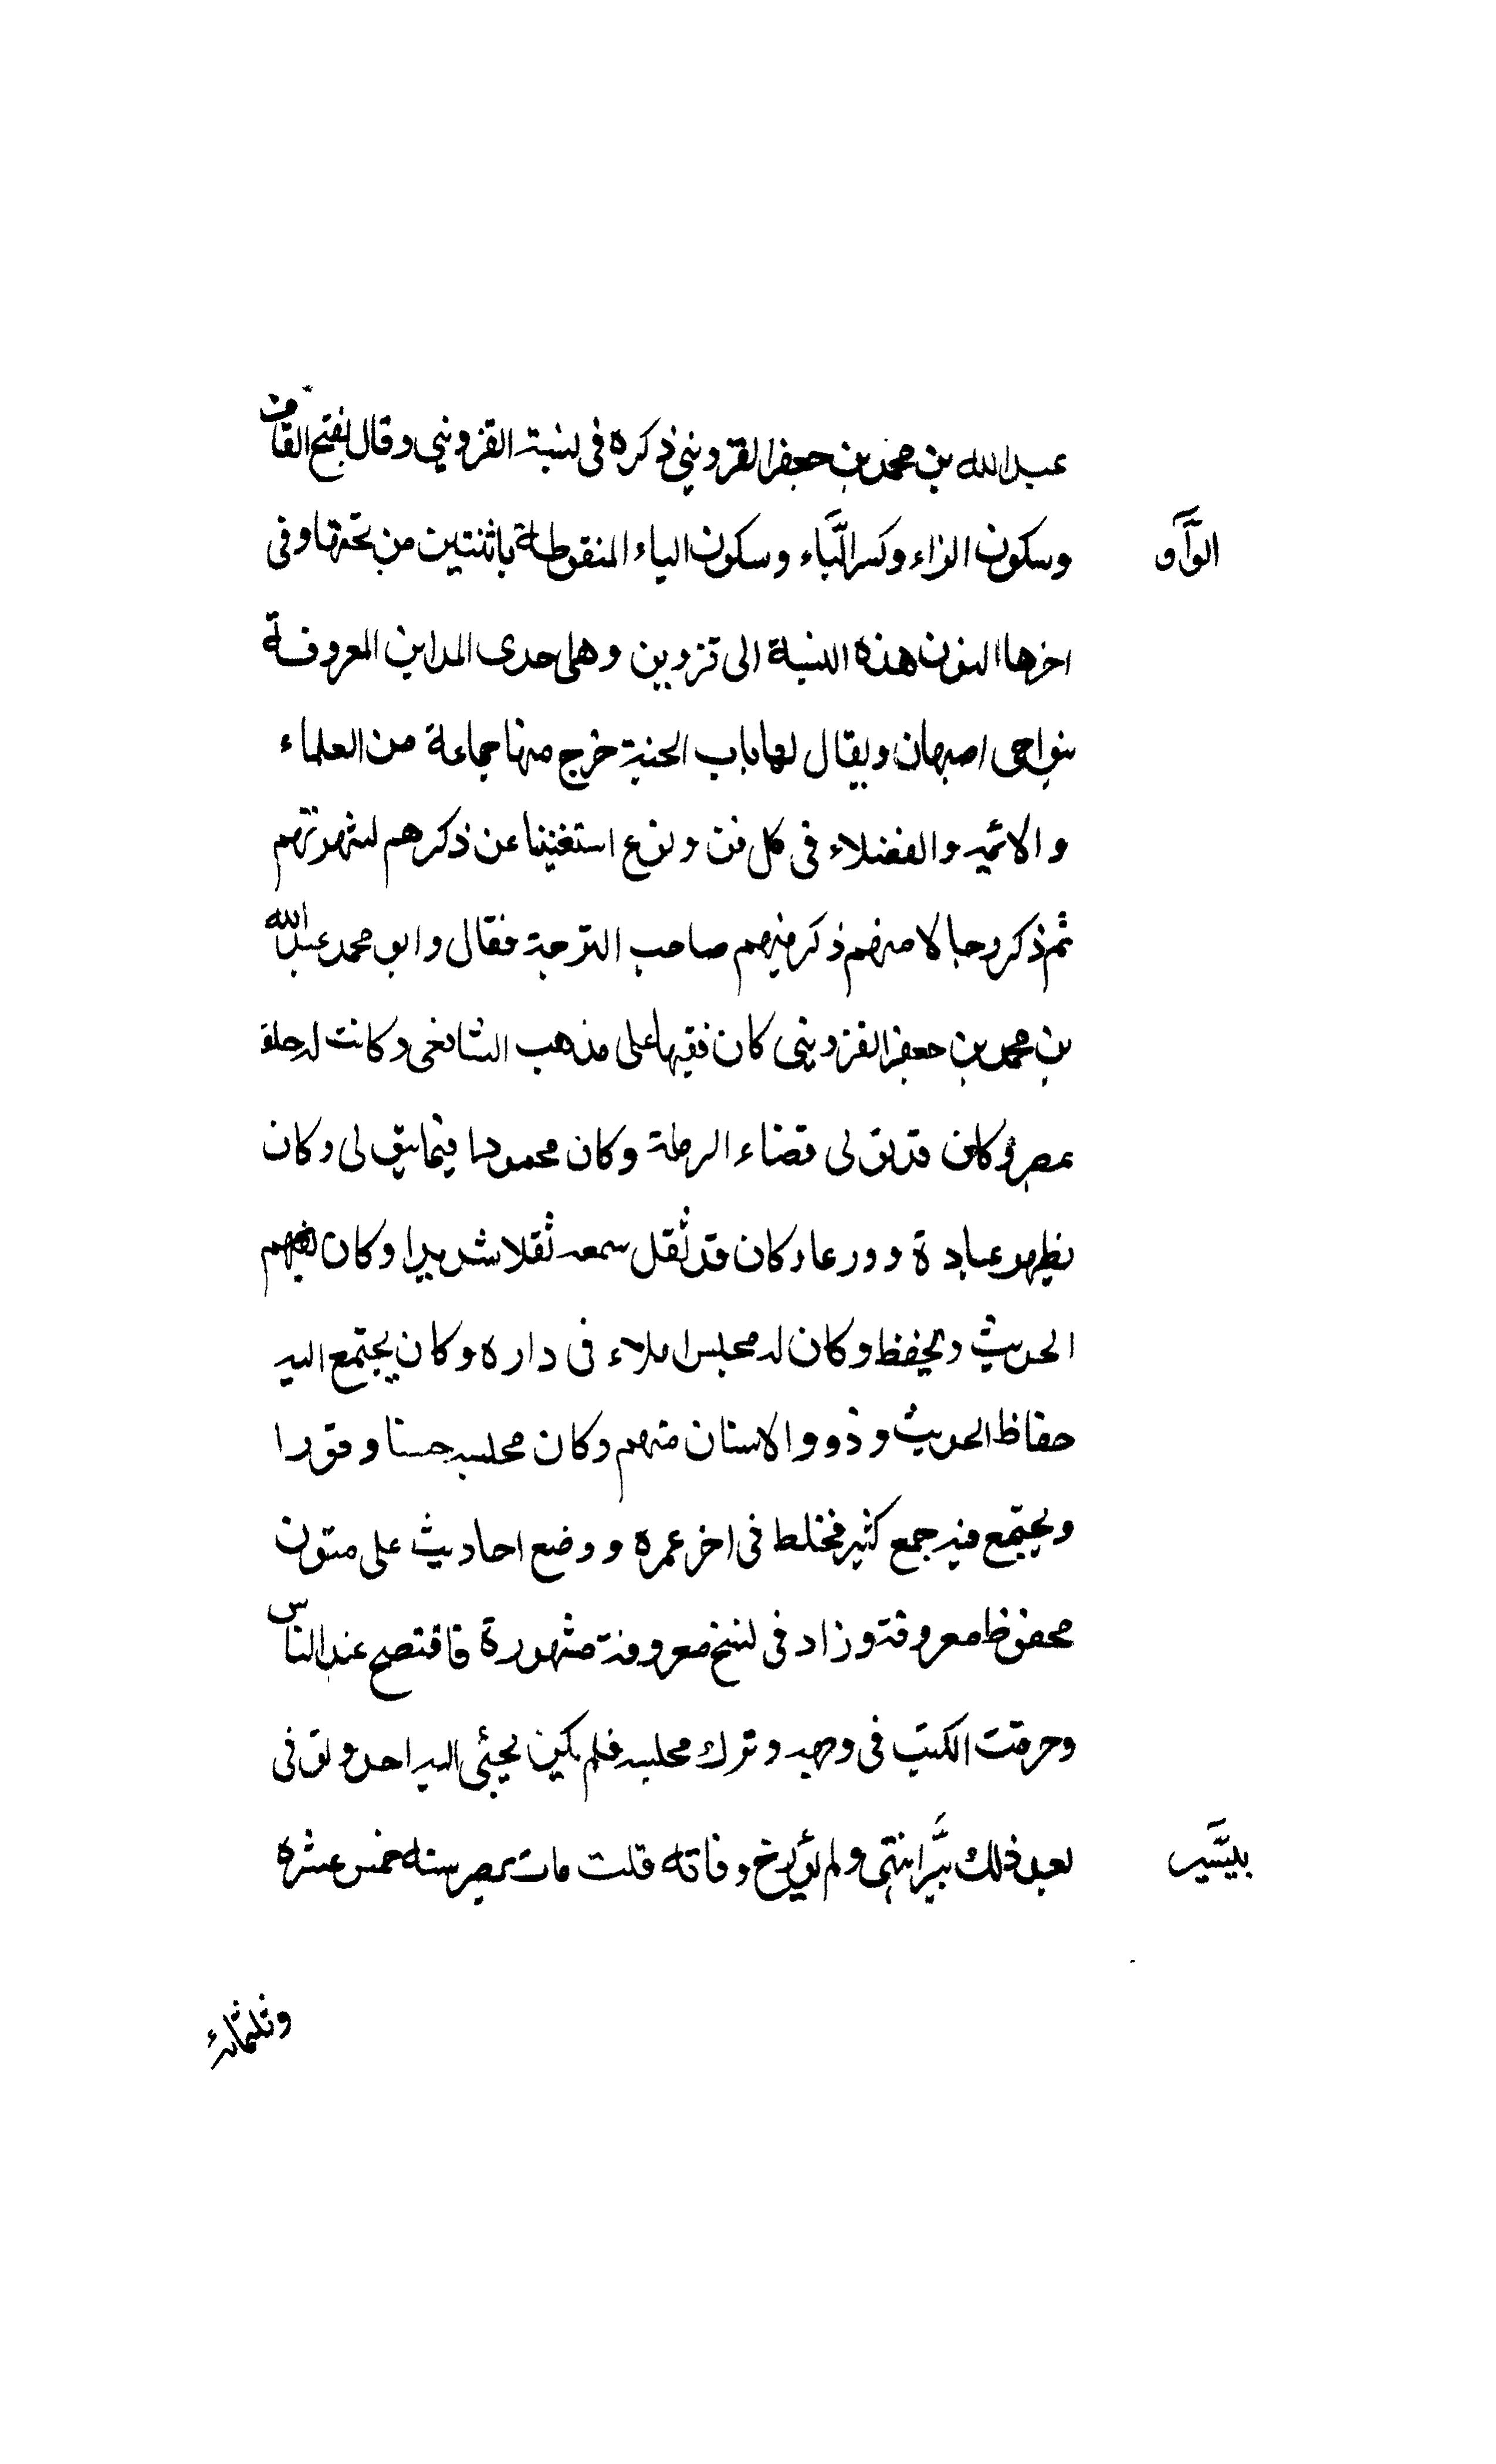 عبدالله بن محمد بن جعفر القزويني ذكره فى نسبة القزويني وقال بفتح القاف
وسكون الزاء وكسر الياء وسكون الياء المنقوطة باثنتين من تحتها وفى
الواو
اخرها النون هذه النسبة الى قزوين وهى احدى المداين المعروفة
بنواحى اصبهان ويقال لها باب الجنة خرج منها جماعة من العلماء
والائمه والفضلاء فى كل فن ونوع استغنينا عن ذكرهم لشهرتهم
ثم ذكر رجالا منهم ذكر فيهم صاحب الترجمة فقال وابو محمد عبدالله
بن محمد بن جعفر القزوينى كان فقيها على مذهب الشافعى وكانت له حلقة
بمصر وكان قد تولى قضاء الرملة وكان محمودا فيما يتولى وكان
يظهر عبادة وورعا وكان قد ثقل سمعه ثقلا شديدا وكان يفهم
الحديث ويحفظ وكان له مجلس املاء فى داره وكان يجتمع اليه
حفاظ الحديث وذووالاسنان منهم وكان مجلسه حسنا وقورا
ويجتمع فيه جمع كثير فخلط فى اخر عمره ووضع احاديث على متون
محفوظ معروفة وزاد فى نسخ معروفة مشهورة فافتضح عند الناس
وحرقت الكتب فى وجهه وترك مجلسه فلم يكن يجئى اليه احد وتوفى
بعد ذلك يسيرا انتهى ولم يؤرخ وفاته قلت مات بمصر سنه خمس عشره
بيسير
وثلثمائة